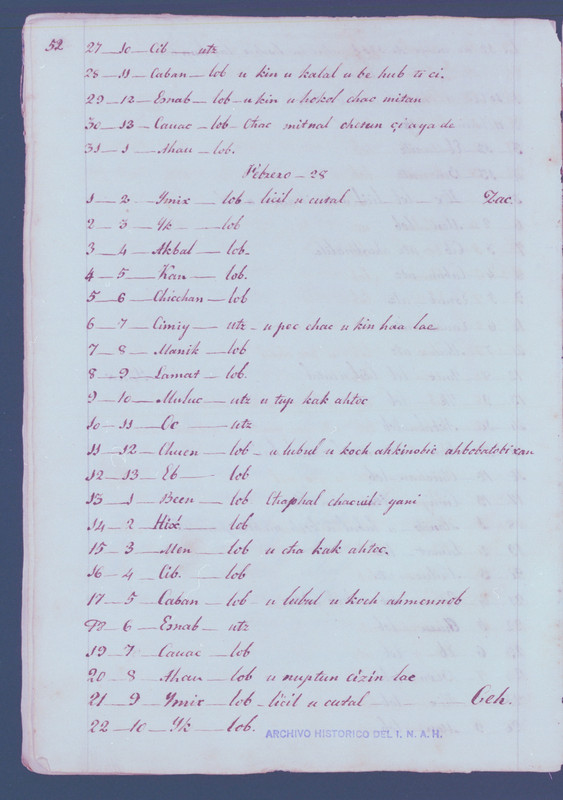 52
27 — 10 — Cib — utz
28 — 11 — Caban — lob u kin u kalal u be hub ti ci.
29 — 12 — Esnab — lob - u kin u hokol chac mitan
30 — 13 — Cauac — lob - Chac mitnal cheeun
31 — 1 — Ahau — lob.
Febrero — 28
1 — 2 — Ymix — lob - licil u cutal Zac.
2 — 3 — Yk — lob
3 — 4 — Akbal — lob.
4 — 5 — Kan — lob.
5 — 6 — Chicchan — lob
6 — 7 — Cimiy — utz - u pec chac u kin haa lac
7 — 8 — Manik — lob
8 — 9 — Lamat — lob.
9 — 10 — Muluc — utz u tup kak ahtoc
10 — 11 — Oc — utz
11 — 12 — Chuen — lob - u lubul u koch ahkinobie ahbobatobixan
12 — 13 — Eb — lob
13 — 1 — Been — lob Chaphal chacuil yani
14 — 2 — Hix — lob
15 — 3 — Men — lob u cha kak ahtoc.
16 — 4 — Cib. — lob
17 — 5 — Caban — lob - u lubul u koch ahmennob
18 — 6 — Esnab — utz
19 — 7 — Cauac — lob
20 — 8 — Ahau — lob u nuptun cizin lac
21 — 9 — Ymix — lob - licil u cutal — Ceh.
22 — 10 — Yk — lob.
ARCHIVO HISTORICO DEL I. N. A. H.